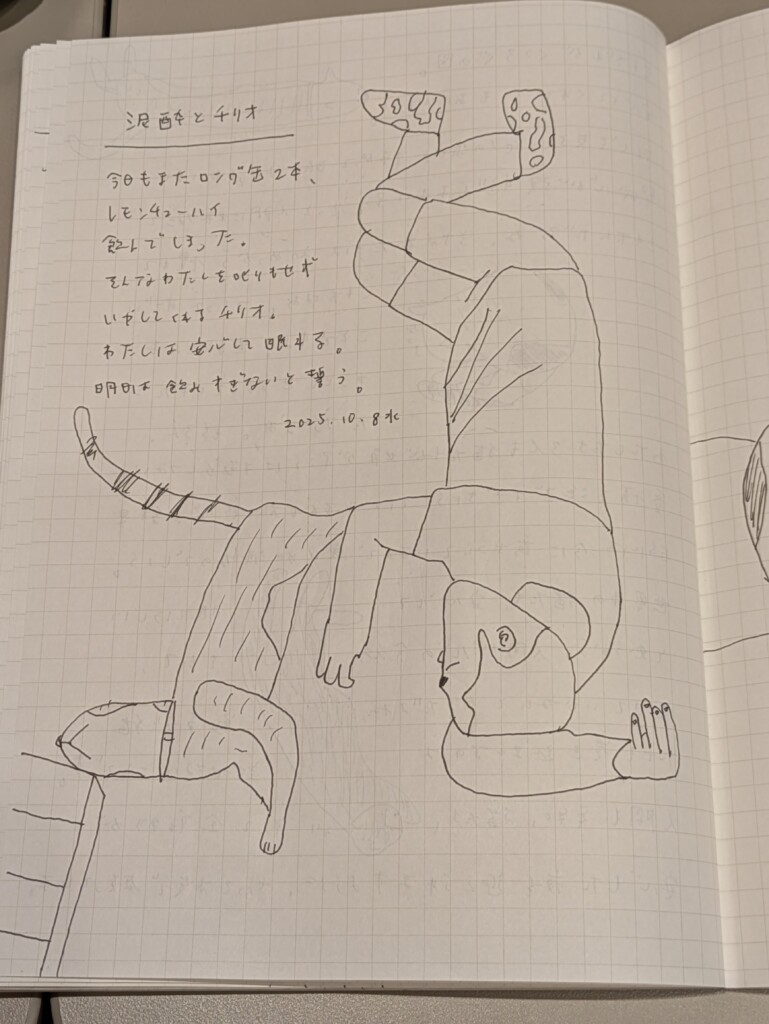 泥酔とチリオ
今日もまたロング缶2本、
レモンチューハイ
飲んでしまった。
そんなわたしを叱りもせず
いやしてくれるチリオ。
わたしは安心して眠する。
明日は飲みすぎないと誓う。
2025.10.8水